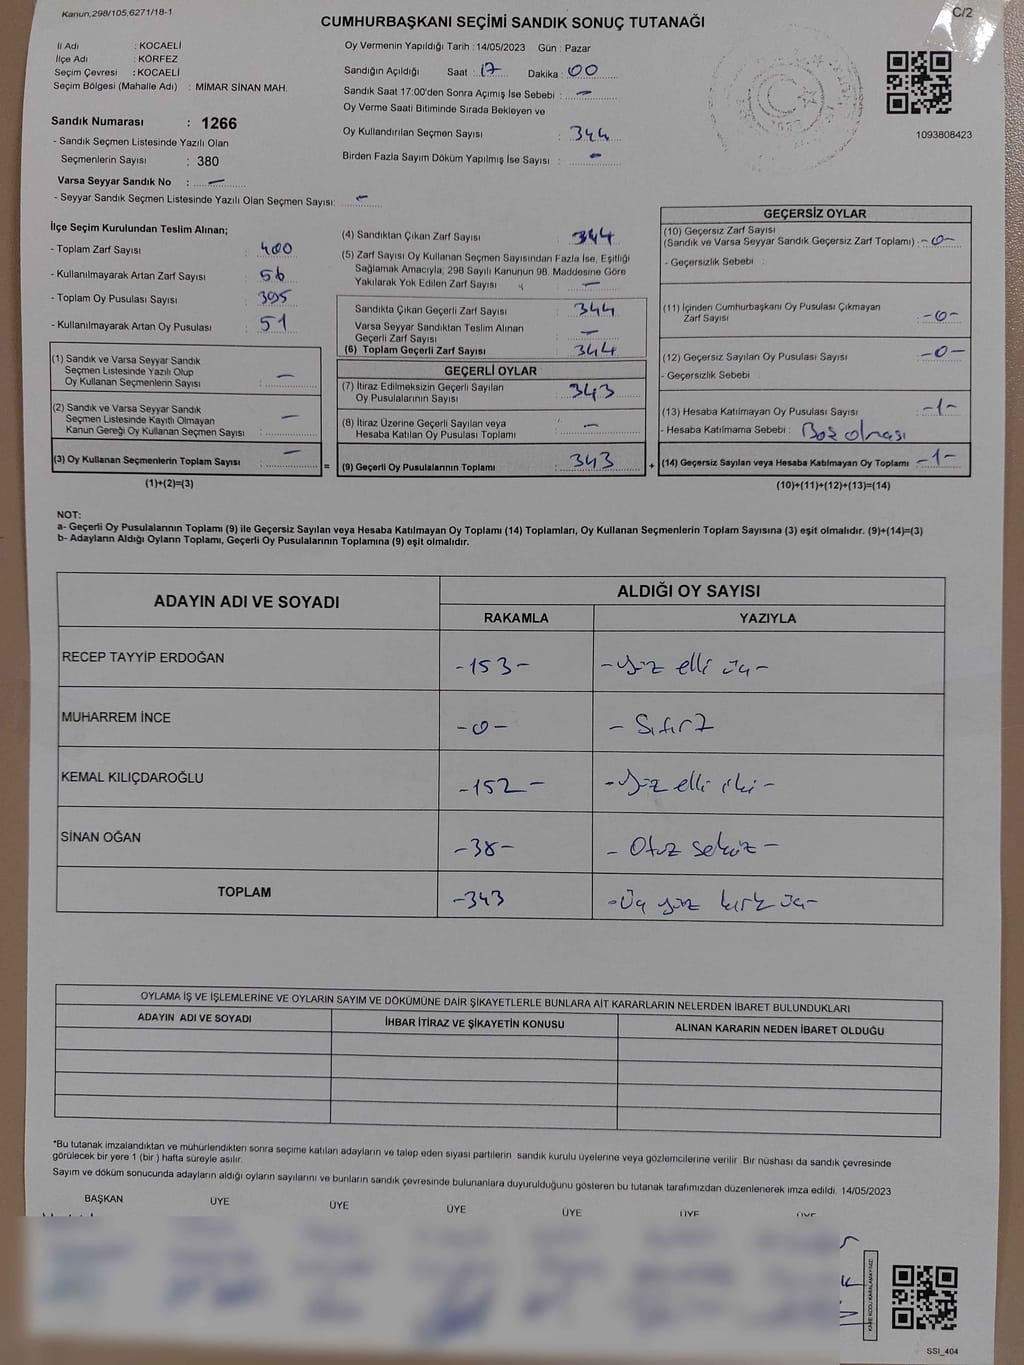 Kanun:298/105,6271/18-1
C/2
CUMHURBAŞKANI SEÇİMİ SANDIK SONUÇ TUTANAĞI
İl Adı : KOCAELİ
İlçe Adı : KÖRFEZ
Seçim Çevresi : KOCAELİ
Seçim Bölgesi (Mahalle Adı) : MİMAR SİNAN MAH.
Sandık Numarası : 1266
- Sandık Seçmen Listesinde Yazılı Olan
Seçmenlerin Sayısı : 380
Varsa Seyyar Sandık No : —
- Seyyar Sandık Seçmen Listesinde Yazılı Olan Seçmen Sayısı: —
Oy Vermenin Yapıldığı Tarih : 14/05/2023 Gün : Pazar
Sandığın Açıldığı Saat : 17 Dakika : 00
Sandık Saat 17:00'den Sonra Açımış İse Sebebi : —
Oy Verme Saati Bitiminde Sırada Bekleyen ve
Oy Kullandırılan Seçmen Sayısı : 344
Birden Fazla Sayım Döküm Yapılmış İse Sayısı : —
1093808423
İlçe Seçim Kurulundan Teslim Alınan;
- Toplam Zarf Sayısı : 400
- Kullanılmayarak Artan Zarf Sayısı : 56
- Toplam Oy Pusulası Sayısı : 395
- Kullanılmayarak Artan Oy Pusulası : 51
(1) Sandık ve Varsa Seyyar Sandık
Seçmen Listesinde Yazılı Olup
Oy Kullanan Seçmenlerin Sayısı : —
(2) Sandık ve Varsa Seyyar Sandık
Seçmen Listesinde Kayıtlı Olmayan
Kanun Gereği Oy Kullanan Seçmen Sayısı : —
(3) Oy Kullanan Seçmenlerin Toplam Sayısı : —
(1)+(2)=(3)
=
(4) Sandıktan Çıkan Zarf Sayısı : 344
(5) Zarf Sayısı Oy Kullanan Seçmen Sayısından Fazla İse, Eşitliği
Sağlamak Amacıyla; 298 Sayılı Kanunun 98. Maddesine Göre
Yakılarak Yok Edilen Zarf Sayısı : —
Sandıkta Çıkan Geçerli Zarf Sayısı : 344
Varsa Seyyar Sandıktan Teslim Alınan
Geçerli Zarf Sayısı : —
(6) Toplam Geçerli Zarf Sayısı : 344
GEÇERLİ OYLAR
(7) İtiraz Edilmeksizin Geçerli Sayılan
Oy Pusulalarının Sayısı : 343
(8) İtiraz Üzerine Geçerli Sayılan veya
Hesaba Katılan Oy Pusulası Toplamı : —
(9) Geçerli Oy Pusulalarının Toplamı : 343
+
GEÇERSİZ OYLAR
(10) Geçersiz Zarf Sayısı
(Sandık ve Varsa Seyyar Sandık Geçersiz Zarf Toplamı) : -0-
- Geçersizlik Sebebi :
(11) İçinden Cumhurbaşkanı Oy Pusulası Çıkmayan
Zarf Sayısı : -0-
(12) Geçersiz Sayılan Oy Pusulası Sayısı : -0-
- Geçersizlik Sebebi :
(13) Hesaba Katılmayan Oy Pusulası Sayısı : -1-
- Hesaba Katılmama Sebebi : Boş olması
(14) Geçersiz Sayılan veya Hesaba Katılmayan Oy Toplamı : -1-
(10)+(11)+(12)+(13)=(14)
NOT:
a- Geçerli Oy Pusulalarının Toplamı (9) ile Geçersiz Sayılan veya Hesaba Katılmayan Oy Toplamı (14) Toplamları, Oy Kullanan Seçmenlerin Toplam Sayısına (3) eşit olmalıdır. (9)+(14)=(3)
b- Adayların Aldığı Oyların Toplamı, Geçerli Oy Pusulalarının Toplamına (9) eşit olmalıdır.
ADAYIN ADI VE SOYADI
ALDIĞI OY SAYISI
RAKAMLA YAZIYLA
RECEP TAYYİP ERDOĞAN -153- -yüz elli üç-
MUHARREM İNCE -0- - Sıfır
KEMAL KILIÇDAROĞLU -152- -yüz elli iki-
SİNAN OĞAN -38- - Otuz sekiz -
TOPLAM -343 -Üç yüz kırk üç-
OYLAMA İŞ VE İŞLEMLERİNE VE OYLARIN SAYIM VE DÖKÜMÜNE DAİR ŞİKAYETLERLE BUNLARA AİT KARARLARIN NELERDEN İBARET BULUNDUKLARI
ADAYIN ADI VE SOYADI İHBAR İTİRAZ VE ŞİKAYETİN KONUSU ALINAN KARARIN NEDEN İBARET OLDUĞU
*Bu tutanak imzalandıktan ve mühürlendikten sonra seçime katılan adayların ve talep eden siyasi partilerin sandık kurulu üyelerine veya gözlemcilerine verilir. Bir nüshası da sandık çevresinde
görülecek bir yere 1 (bir ) hafta süreyle asılır.
Sayım ve döküm sonucunda adayların aldığı oyların sayılarını ve bunların sandık çevresinde bulunanlara duyurulduğunu gösteren bu tutanak tarafımızdan düzenlenerek imza edildi. 14/05/2023
BAŞKAN ÜYE ÜYE ÜYE ÜYE ÜYE ÜYE
SSI_404